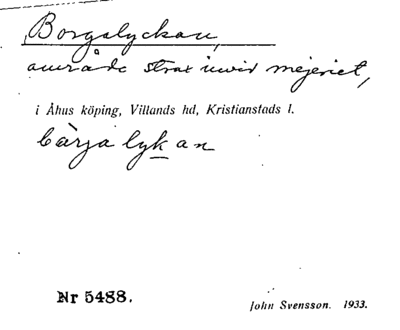 Borgalyckan,
område strax invid mejeriet,
i Åhus köping, Villands hd, Kristianstads l.
bàrjalykan
Nr 5488.
John Svensson. 1933.